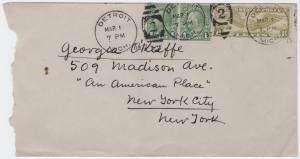 DETROIT
MAR 1
7 PM
2
2
Georgia O'Keeffe
509 Madison Ave.
"An American Place"
New York City
New York